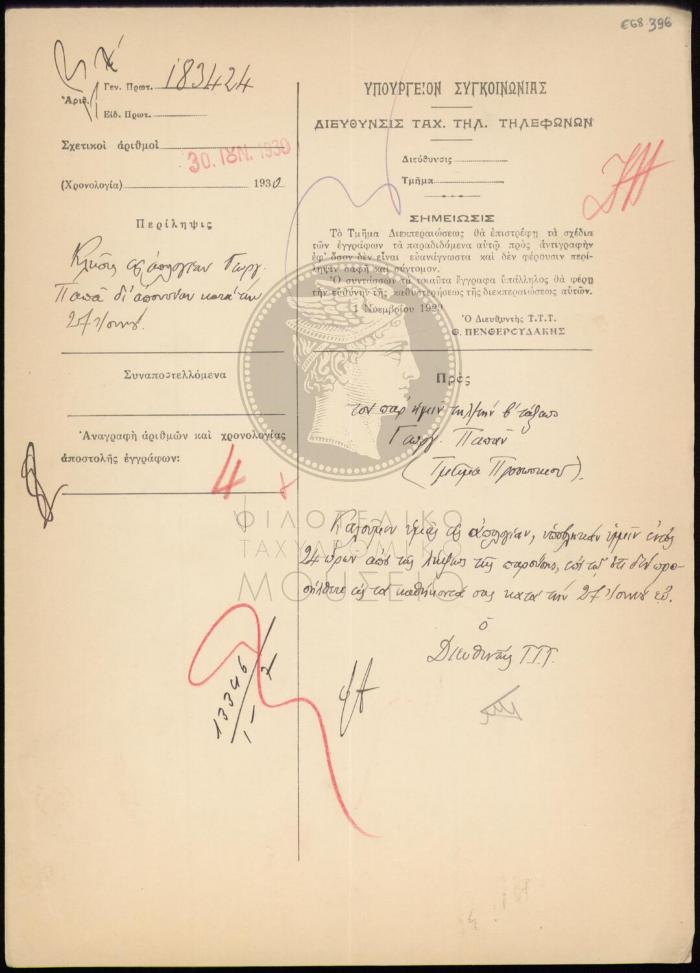 €68.396
Γεν. Πρωτ. 183424
Ἀριθ.
Εἰδ. Πρωτ.
Σχετικοὶ ἀριθμοὶ
30. ΙΟΥΝ. 1930
(Χρονολογία) 1930
Περίληψις
Κλῆσις εἰς ἀπολογίαν Γεωργ.
Παπᾶ δι' ἀπουσίαν κατὰ τὴν
27
Συναποστελλόμενα
Ἀναγραφὴ ἀριθμῶν καὶ χρονολογίας
ἀποστολῆς ἐγγράφων:
4
ΥΠΟΥΡΓΕΙΟΝ ΣΥΓΚΟΙΝΩΝΙΑΣ
ΔΙΕΥΘΥΝΣΙΣ ΤΑΧ. ΤΗΛ. ΤΗΛΕΦΩΝΩΝ
Διεύθυνσις
Τμῆμα
ΣΗΜΕΙΩΣΙΣ
Τὸ Τμῆμα Διεκπεραιώσεως θὰ ἐπιστρέφῃ τὰ σχέδια
τῶν ἐγγράφων τὰ παραδιδόμενα αὐτῷ πρὸς ἀντιγραφὴν
ἐφ' ὅσον δὲν εἶναι εὐανάγνωστα καὶ δὲν φέρουσιν περί-
ληψιν σαφῆ καὶ σύντομον.
Ὁ συντάσσων τὰ τοιαῦτα ἔγγραφα ὑπάλληλος θὰ φέρῃ
τὴν εὐθύνην τῆς καθυστερήσεως τῆς διεκπεραιώσεως αὐτῶν.
1 Νοεμβρίου 1929
Ὁ Διευθυντὴς Τ.Τ.Τ.
Θ. ΠΕΝΘΕΡΟΥΔΑΚΗΣ
Πρὸς
τὸν παρ' ἡμῖν β' τάξεως
Γεωργ. Παπᾶν
(Τμῆμα Προσωπικοῦ).
Καλοῦμεν ὑμᾶς εἰς ἀπολογίαν, ἐντὸς
24 ὡρῶν ἀπὸ τῆς λήψεως τῆς παρούσης, ὅτι δὲν προ-
σήλθετε εἰς τὰ καθήκοντά σας κατὰ τὴν 27
ὁ
Διευθυντὴς Τ.Τ.Τ.
13346
ΦΙΛΟΤΕΛΙΚΟ
ΤΑΧΥΔΡΟΜΙΚΟ
ΜΟΥΣΕΙΟ